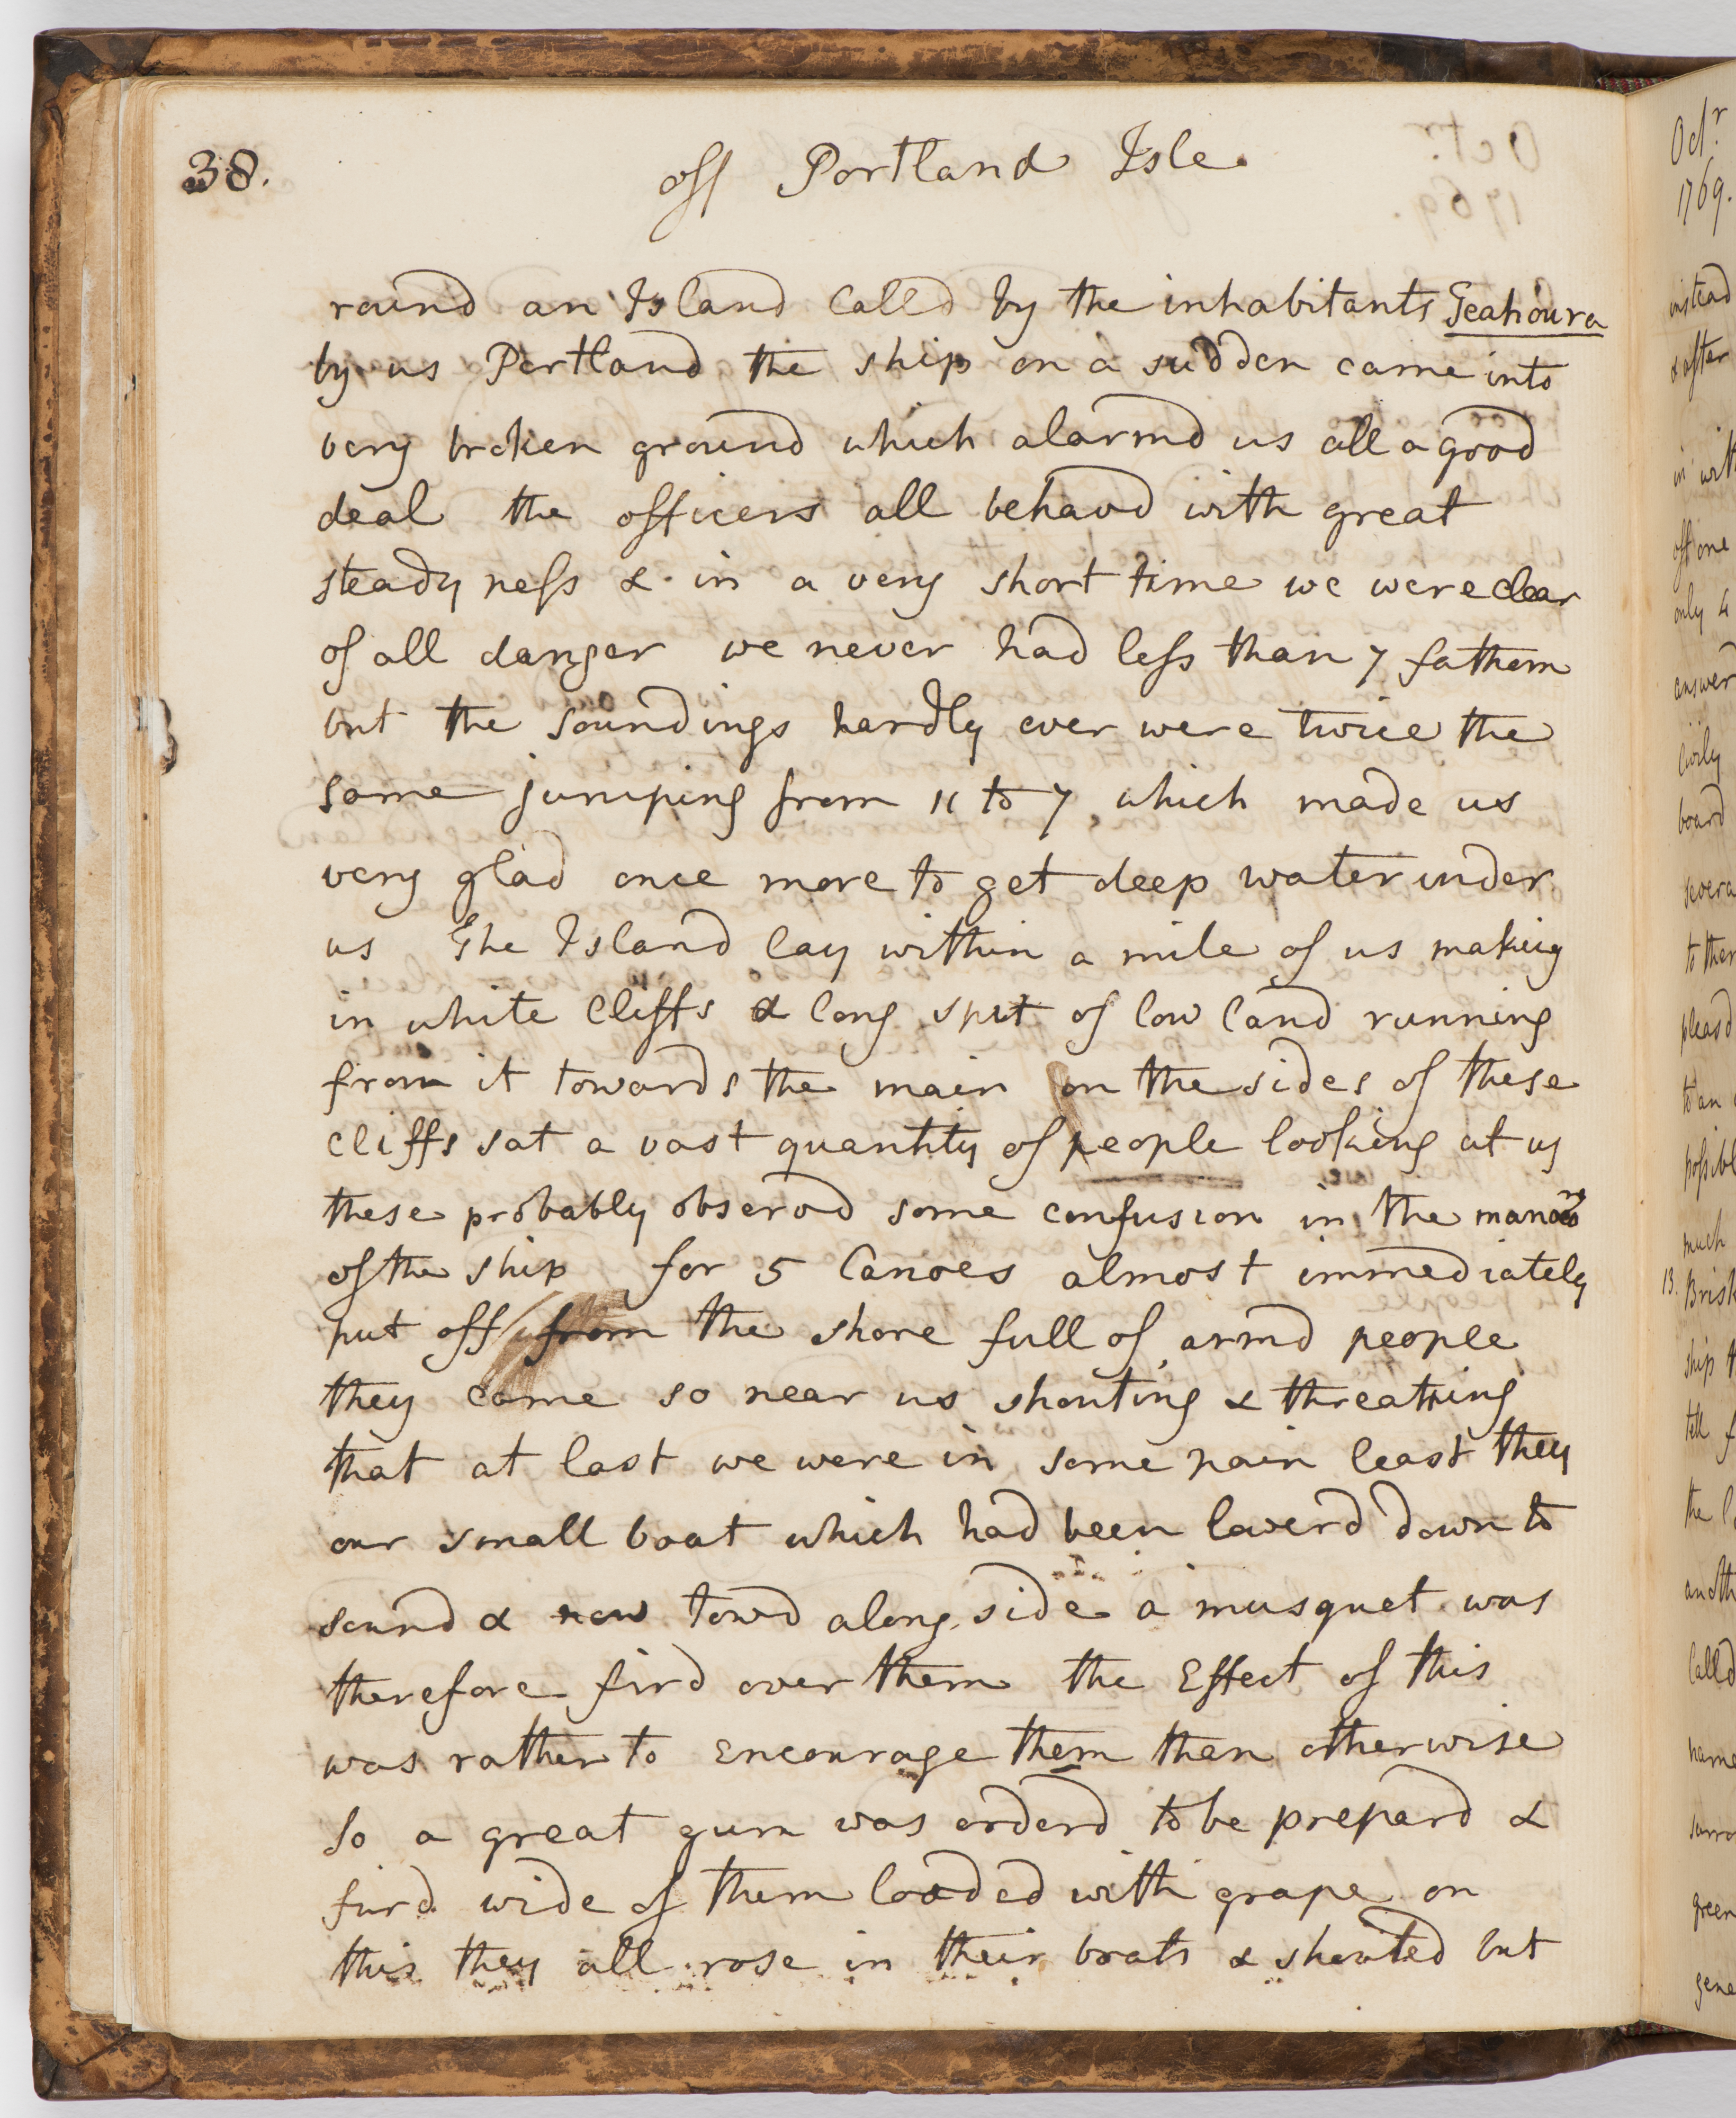 38.
off Portland Isle.
round an Island Calld by the inhabitants Teahoura
by us Portland the ship on a sudden came into
very broken ground which alarmd us all a good
deal the officers all behavd with great
steadyness & in a very short time we were clear
of all danger we never had less than 7 fathom
but the soundings hardly ever were twice the
same jumping from 11 to 7 which made us
very glad once more to get deep water under
us The Island lay within a mile of us making
in white Cliffs & long spit of low land running
from it towards the main on the sides of these
Cliffs sat a vast quantity of people looking at us
these probably observd some confusion in the
of the ship for 5 Canoes almost immediately
put off from the shore full of armd people
they came so near us shouting & threatning
that at last we were in some pain least they
our small boat which had been lowerd down to
sound & now towd along side a musquet was
therefore fird over them the Effect of this
was rather to Encourage them than otherwise
so a great gun was orderd to be prepard &
fird wide of them loaded with grape on
this they all rose in their boats & shouted but
Octr
1769.
instead
& after
in with
off one
only 4
answer
Civily
board
severa
pleasd
to an
possibl
much
13. Brisk
ship
tell
the
anoth
Calld
name
green
gene